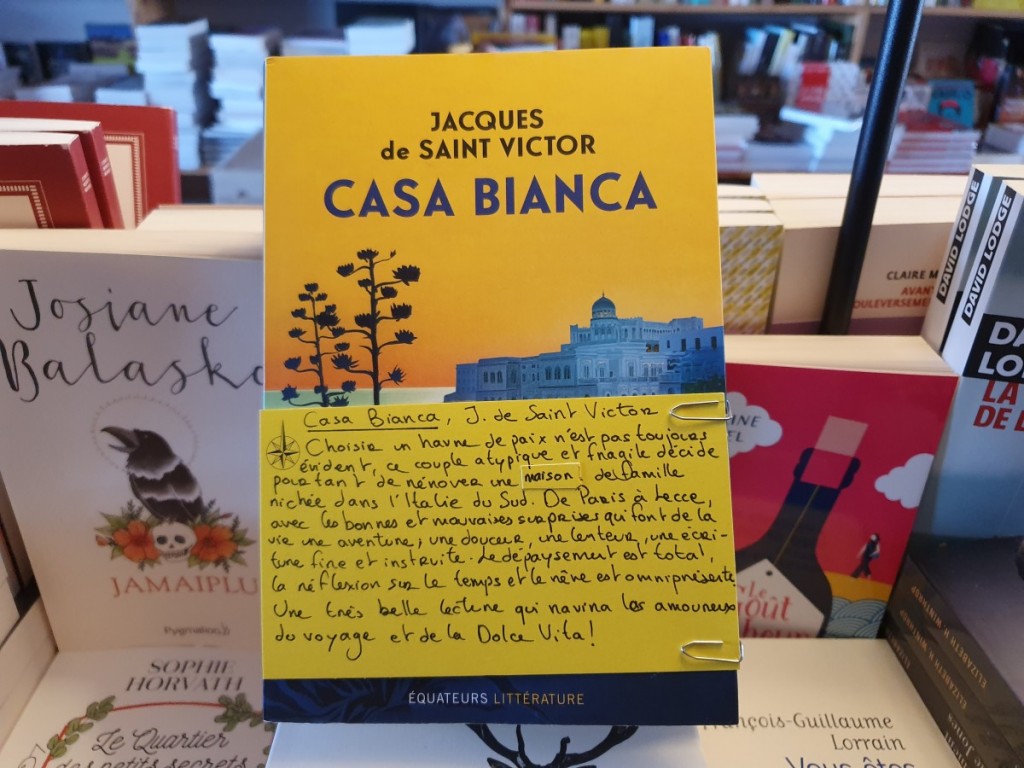 JACQUES
de SAINT VICTOR
CASA BIANCA
Casa Bianca, J. de Saint Victor
Choisir un havre de paix n'est pas toujours
évident, ce couple atypique et fragile décide
pourtant de rénover une maison de famille
nichée dans l'Italie du Sud. De Paris à Lecce,
avec les bonnes et mauvaises surprises qui font de la
vie une aventure, une douceur, une lenteur, une écri-
ture fine et instruite. Le dépaysement est total,
la réflexion sur le temps et le rêve est omniprésente
Une très belle lecture qui ravira les amoureux
du voyage et de la Dolce Vita!
ÉQUATEURS LITTÉRATURE
Josiane
Balasko
JAMAIPLU
Pygmalion
SOPHIE
HORVATH
Le Quartier
des petits secrets
CLAIRE M
AVAN
OULEVERSEMEN
DAVID LODGE
DAVID LODGE
DA
LO
LA
DE
INE
EL
Le
oût
François-Guillaume
Lorrain
Vous êtes
ELIZABETH H. WINTHROP